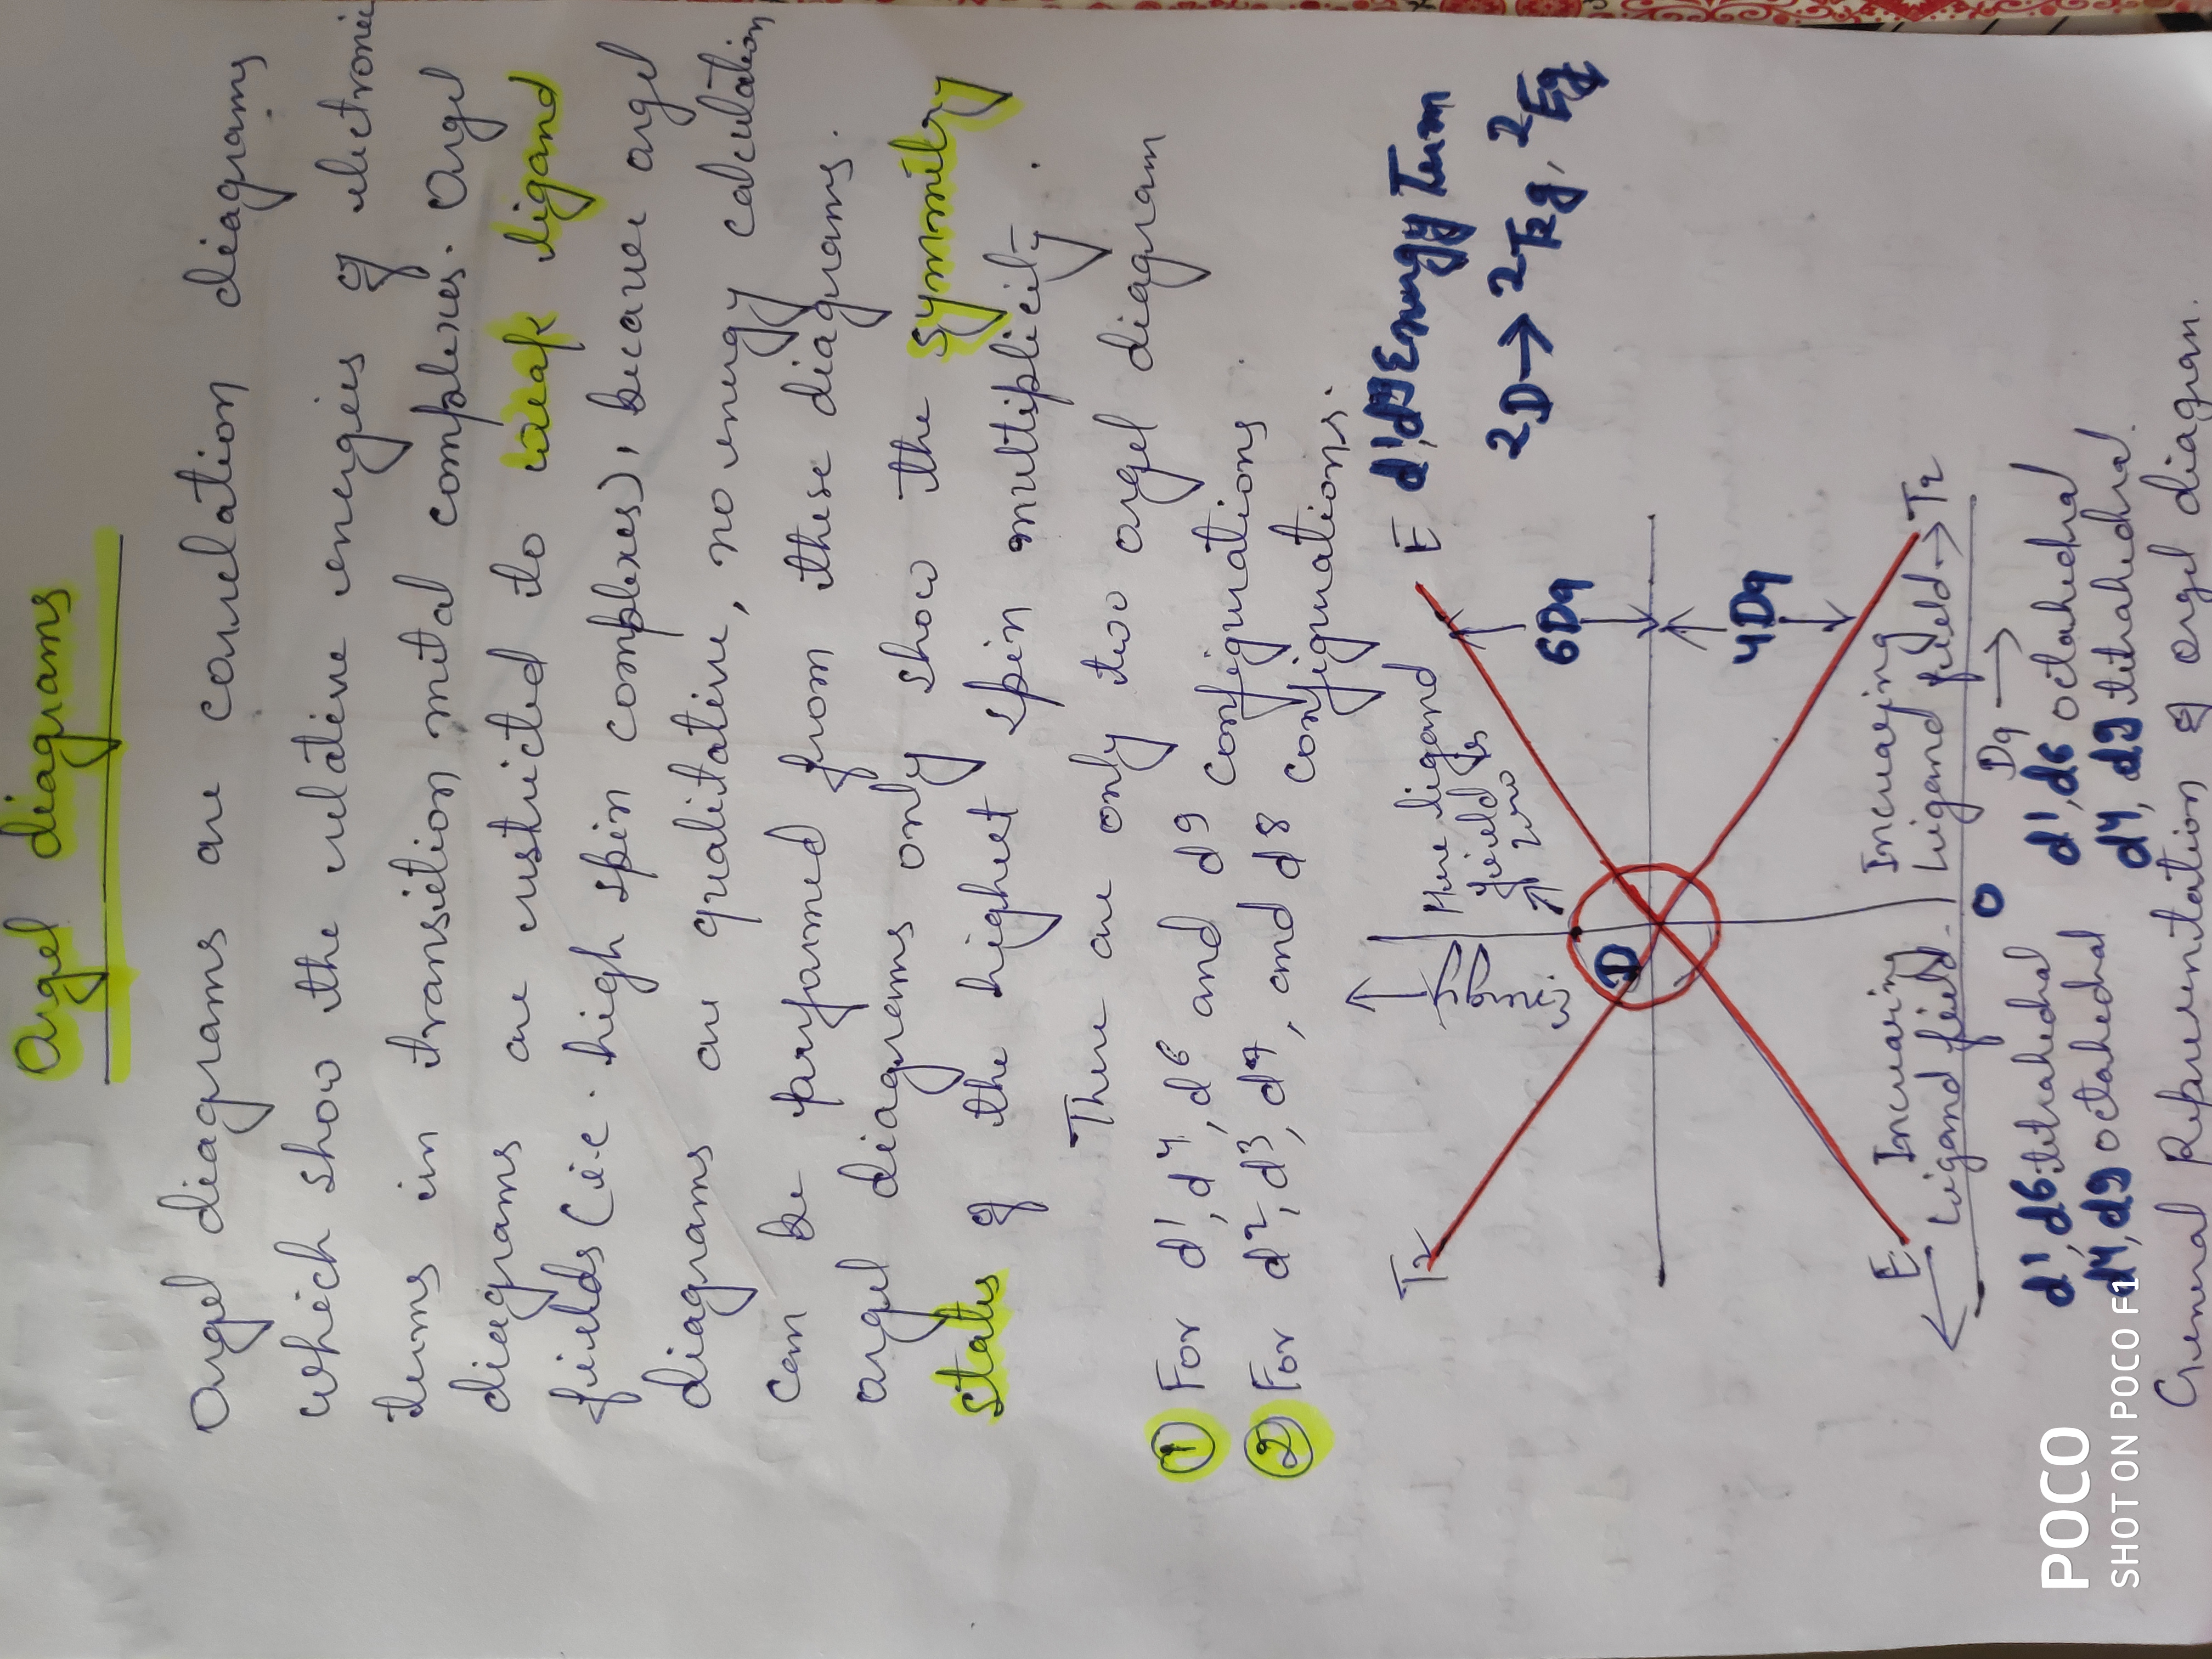 Orgel diagrams
Orgel diagrams are correlation diagrams
which show the relative energies of electronic
terms in transition metal complexes. Orgel
diagrams are restricted to weak ligand
fields (i.e. high spin complexes), because orgel
diagrams are qualitative, no energy calculation
can be performed from these diagrams.
orgel diagrams only show the symmetry
states of the highest spin multiplicity.
There are only two orgel diagram
① For d1, d4, d6 and d9 configurations.
② For d2, d3, d7, and d8 configurations.
E d1, d9 Energy Term
2D → 2T2g, 2Eg
T2
Energy
Here ligand
field is
zero
6Dq
D
4Dq
E
Increasing
Ligand field
Increasing
Ligand field →
T2
0
Dq →
d1, d6 tetrahedral
d1, d6 octahedral
d4, d9 octahedral
d4, d9 tetrahedral
General Representation of orgel diagram.
POCO
SHOT ON POCO F1